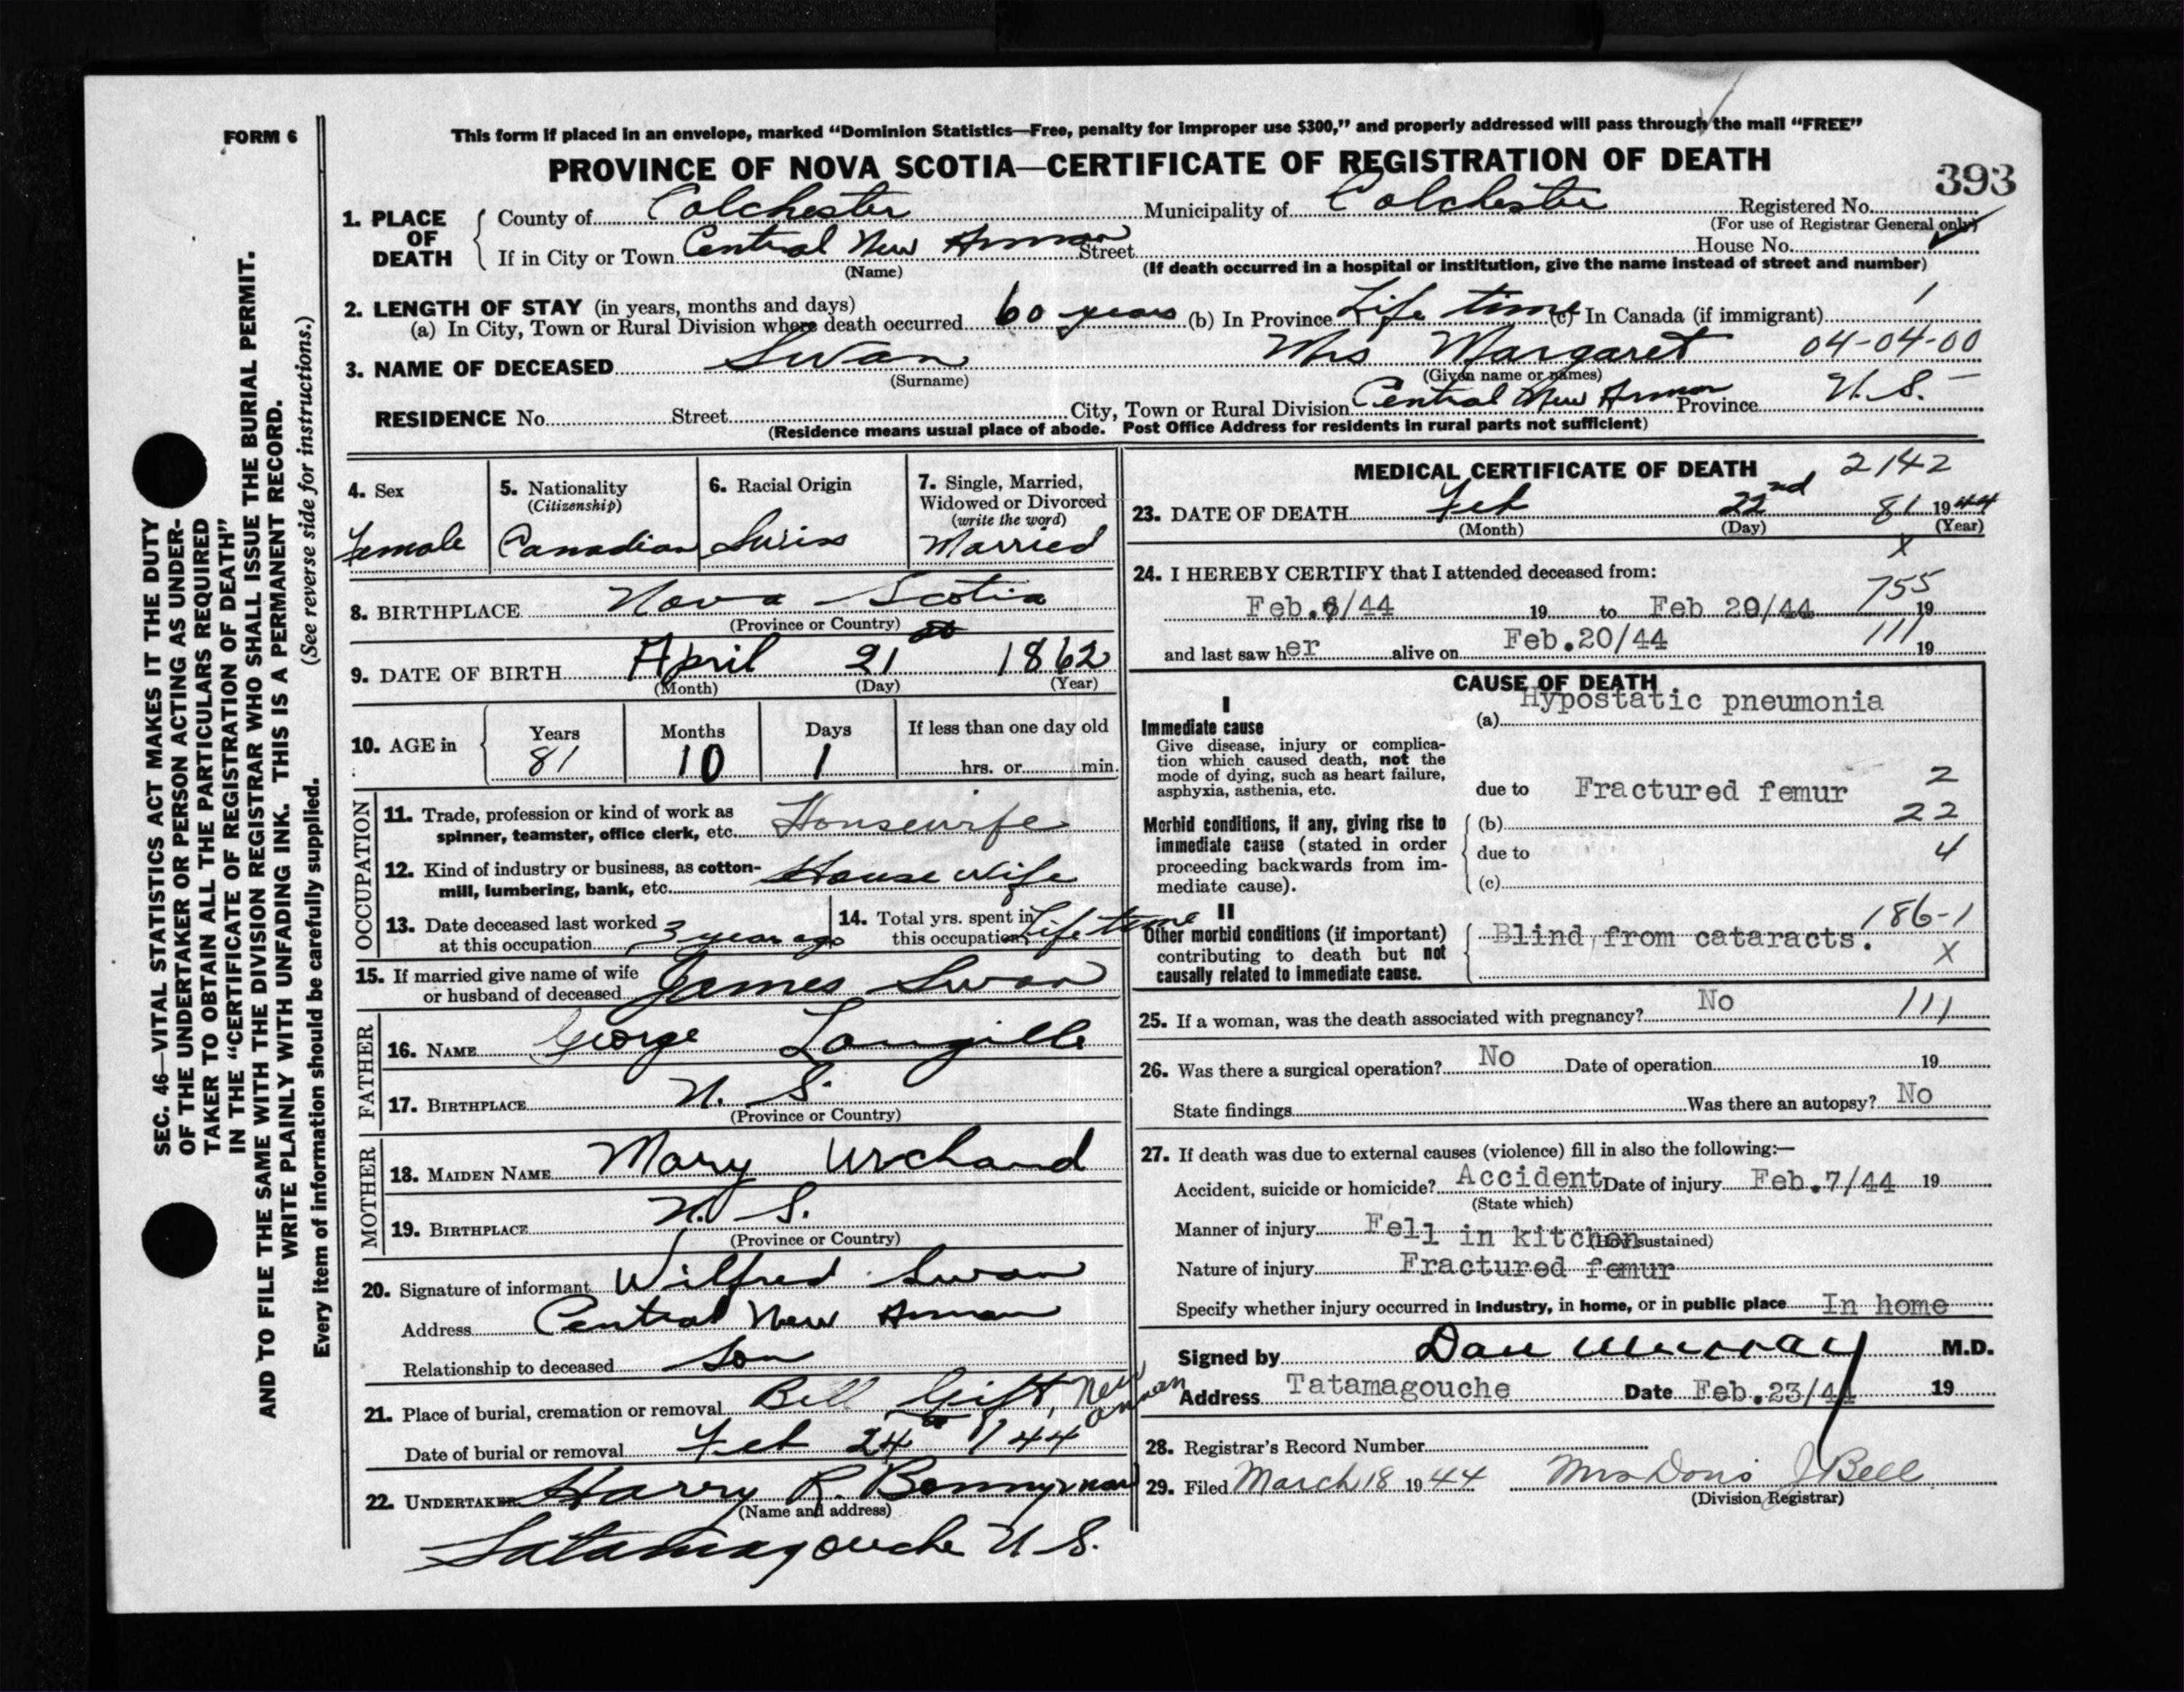 FORM 6
This form if placed in an envelope, marked “Dominion Statistics—Free, penalty for improper use $300,” and properly addressed will pass through the mail “FREE”
PROVINCE OF NOVA SCOTIA—CERTIFICATE OF REGISTRATION OF DEATH
393
1. PLACE OF DEATH
County of Colchester Municipality of Colchester Registered No.
(For use of Registrar General only)
If in City or Town Central New Annan Street House No.
(Name) (If death occurred in a hospital or institution, give the name instead of street and number)
2. LENGTH OF STAY (in years, months and days)
(a) In City, Town or Rural Division where death occurred 60 years (b) In Province Life time (c) In Canada (if immigrant) 1
3. NAME OF DECEASED Swan Mrs Margaret 04-04-00
(Surname) (Given name or names)
RESIDENCE No. Street City, Town or Rural Division Central New Annan Province N.S.
(Residence means usual place of abode. Post Office Address for residents in rural parts not sufficient)
4. Sex
Female
5. Nationality
(Citizenship)
Canadian
6. Racial Origin
Swiss
7. Single, Married,
Widowed or Divorced
(write the word)
Married
8. BIRTHPLACE Nova Scotia
(Province or Country)
9. DATE OF BIRTH April 21st 1862
(Month) (Day) (Year)
10. AGE in
Years Months Days If less than one day old
81 10 1 hrs. or min.
OCCUPATION
11. Trade, profession or kind of work as
spinner, teamster, office clerk, etc. Housewife
12. Kind of industry or business, as cotton-
mill, lumbering, bank, etc. House wife
13. Date deceased last worked
at this occupation 3 year ago
14. Total yrs. spent in
this occupation Life time
15. If married give name of wife
or husband of deceased James Swan
FATHER
16. NAME George Langille
17. BIRTHPLACE N. S.
(Province or Country)
MOTHER
18. MAIDEN NAME Mary
19. BIRTHPLACE N. S.
(Province or Country)
20. Signature of informant Wilfred Swan
Address Central New Annan
Relationship to deceased Son
21. Place of burial, cremation or removal Bell Gift, New Annan
Date of burial or removal Feb 24th 1944
22. UNDERTAKER Harry R. Bonnyman
(Name and address)
Tatamagouche N S.
MEDICAL CERTIFICATE OF DEATH 2142
23. DATE OF DEATH Feb 22nd 81 1944
(Month) (Day) (Year)
X
24. I HEREBY CERTIFY that I attended deceased from:
755
Feb. /44 19 to Feb 20/44 19
111
and last saw her alive on Feb.20/44 19
CAUSE OF DEATH
I
Immediate cause
Give disease, injury or complica-
tion which caused death, not the
mode of dying, such as heart failure,
asphyxia, asthenia, etc.
(a) Hypostatic pneumonia
due to Fractured femur 2
Morbid conditions, if any, giving rise to
immediate cause (stated in order
proceeding backwards from im-
mediate cause).
(b) 22
due to 4
(c)
II
Other morbid conditions (if important)
contributing to death but not
causally related to immediate cause.
Blind from cataracts. 186-1
X
25. If a woman, was the death associated with pregnancy? No 111
26. Was there a surgical operation? No Date of operation 19
State findings Was there an autopsy? No
27. If death was due to external causes (violence) fill in also the following:—
Accident, suicide or homicide? Accident Date of injury Feb.7/44 19
(State which)
Manner of injury Fell in kitchen
(How sustained)
Nature of injury Fractured femur
Specify whether injury occurred in industry, in home, or in public place In home
Signed by Dan Murray M.D.
Address Tatamagouche Date Feb.23/44 19
28. Registrar's Record Number
29. Filed March 18 1944 Mrs Doris J Bell
(Division Registrar)
SEC. 46—VITAL STATISTICS ACT MAKES IT THE DUTY
OF THE UNDERTAKER OR PERSON ACTING AS UNDER-
TAKER TO OBTAIN ALL THE PARTICULARS REQUIRED
IN THE “CERTIFICATE OF REGISTRATION OF DEATH”
AND TO FILE THE SAME WITH THE DIVISION REGISTRAR WHO SHALL ISSUE THE BURIAL PERMIT.
WRITE PLAINLY WITH UNFADING INK. THIS IS A PERMANENT RECORD.
Every item of information should be carefully supplied. (See reverse side for instructions.)